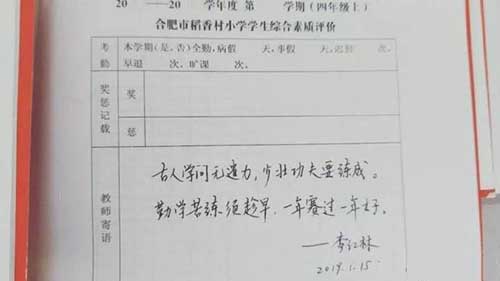 20 ——20 学年度 第 学期（四年级上）
合肥市稻香村小学学生综合素质评价
考勤
本学期(是,否)全勤,病假 天,事假 天,迟到 次,
早退 次,旷课 次。
奖惩记载
奖
惩
教师寄语
古人学问无遗力，少壮功夫要练成。
勤学苦练须趁早，一年赛过一年好。
——李红林
2019.1.15